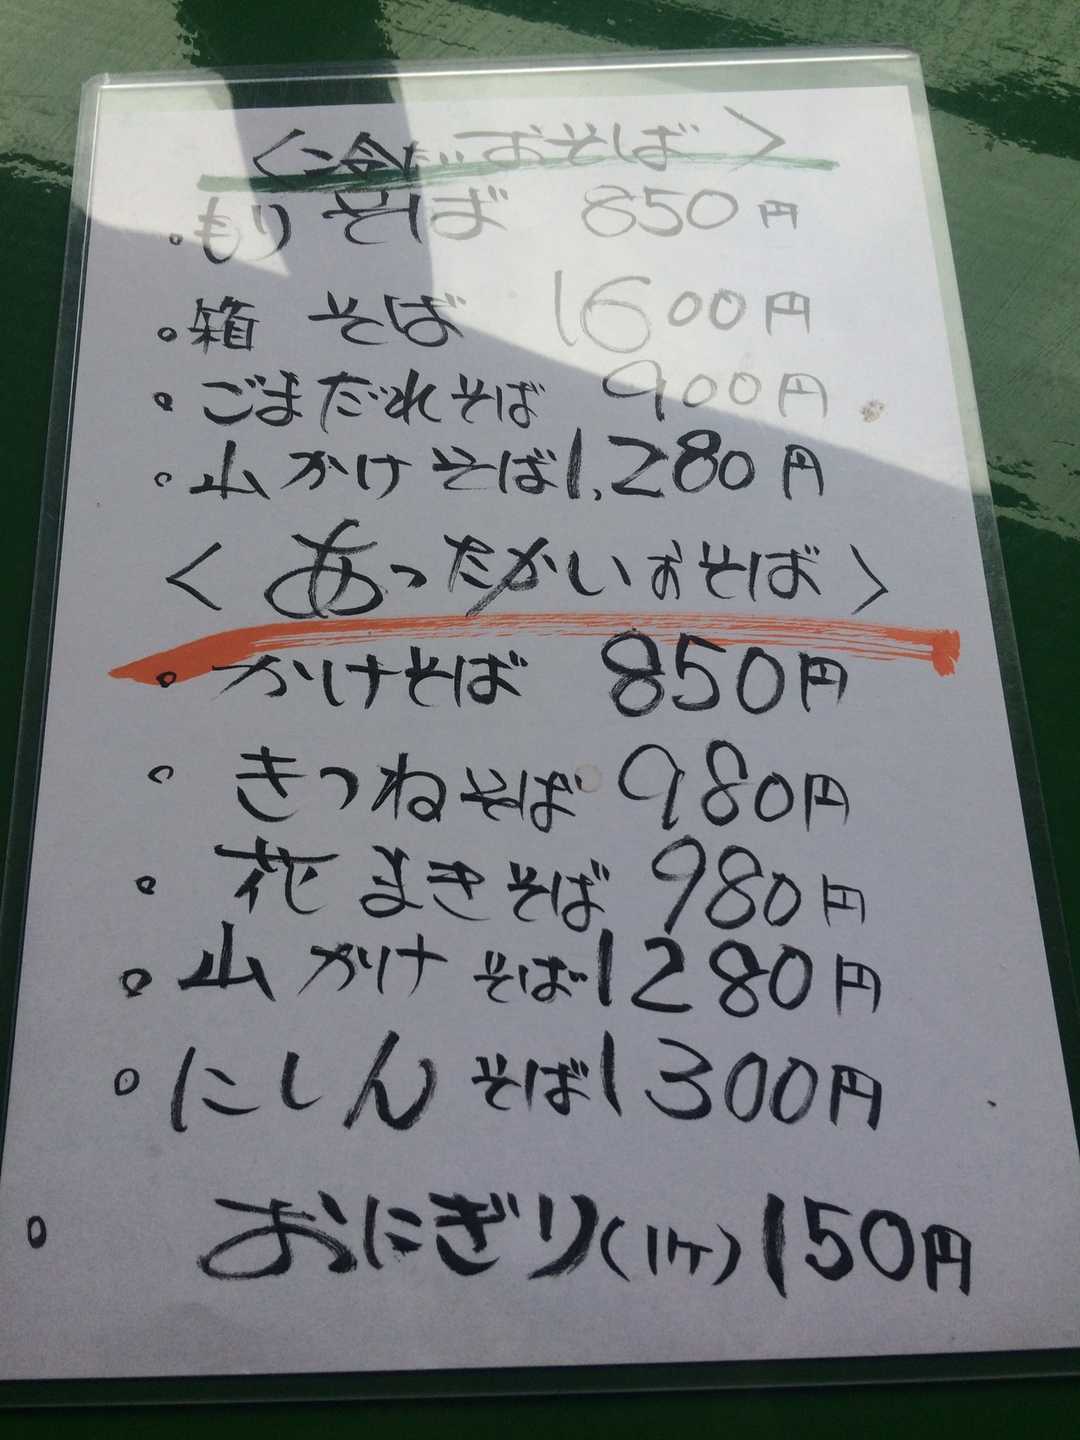 〈冷たいおそば〉
。もりそば 850円
。箱そば 1600円
。ごまだれそば 900円
。山かけそば 1,280円
〈あったかいおそば〉
。かけそば 850円
。きつねそば 980円
。花まきそば 980円
。山かけそば 1280円
。にしんそば 1300円
。おにぎり(1ヶ) 150円